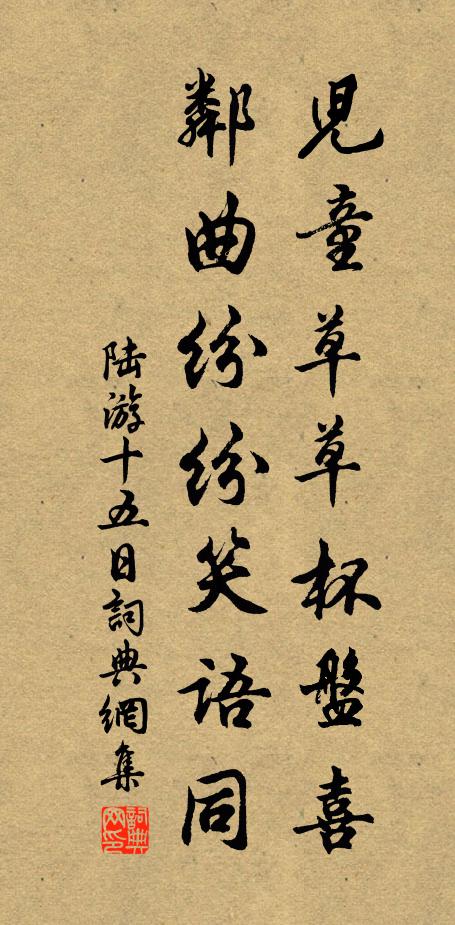 兒童草草杯盤喜
鄰曲紛紛笑語同
陆游十五日詞典網集
詞典网印